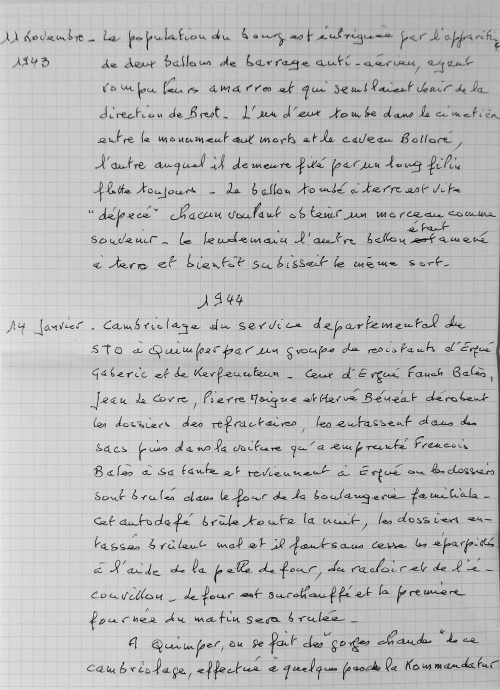 11 Novembre - La population du bourg est intriguée par l'apparition
1943 de deux ballons de barrage anti-aérien, ayant
rompu leurs amarres et qui semblaient venir de la
direction de Brest. L'un d'eux tombe dans le cimetière
entre le monument aux morts et le caveau Bolloré,
l'autre auquel il demeure fixé par un long filin
flotte toujours - Le ballon tombé à terre est vite
"dépecé" chacun voulant obtenir un morceau comme
souvenir - Le lendemain l'autre ballon était amené
à terre et bientôt subissait le même sort.
1944
14 Janvier. Cambriolage du service departemental du
STO à Quimper par un groupe de resistants d'Ergué
Gaberic et de Kerfeunteun - Ceux d'Ergué Fanch Balès,
Jean Le Corre, Pierre Moigne et Hervé Bénéat dérobent
les dossiers des refractaires, les entassent dans des
sacs puis dans la voiture qu'a emprunté Francois
Balès à sa tante et reviennent à Ergué ou les dossiers
sont brulés dans le four de la boulangerie familiale -
Cet autodafé brûle toute la nuit, les dossiers en-
tassés brûlent mal et il faut sans cesse les éparpillés
à l'aide de la pelle de four, du racloir et de l'é-
couvillon - Le four est surchauffé et la première
fournée du matin sera brulée -
A Quimper, on se fait des "gorges chaudes" de ce
cambriolage, effectué à quelques pas de la Kommandatur